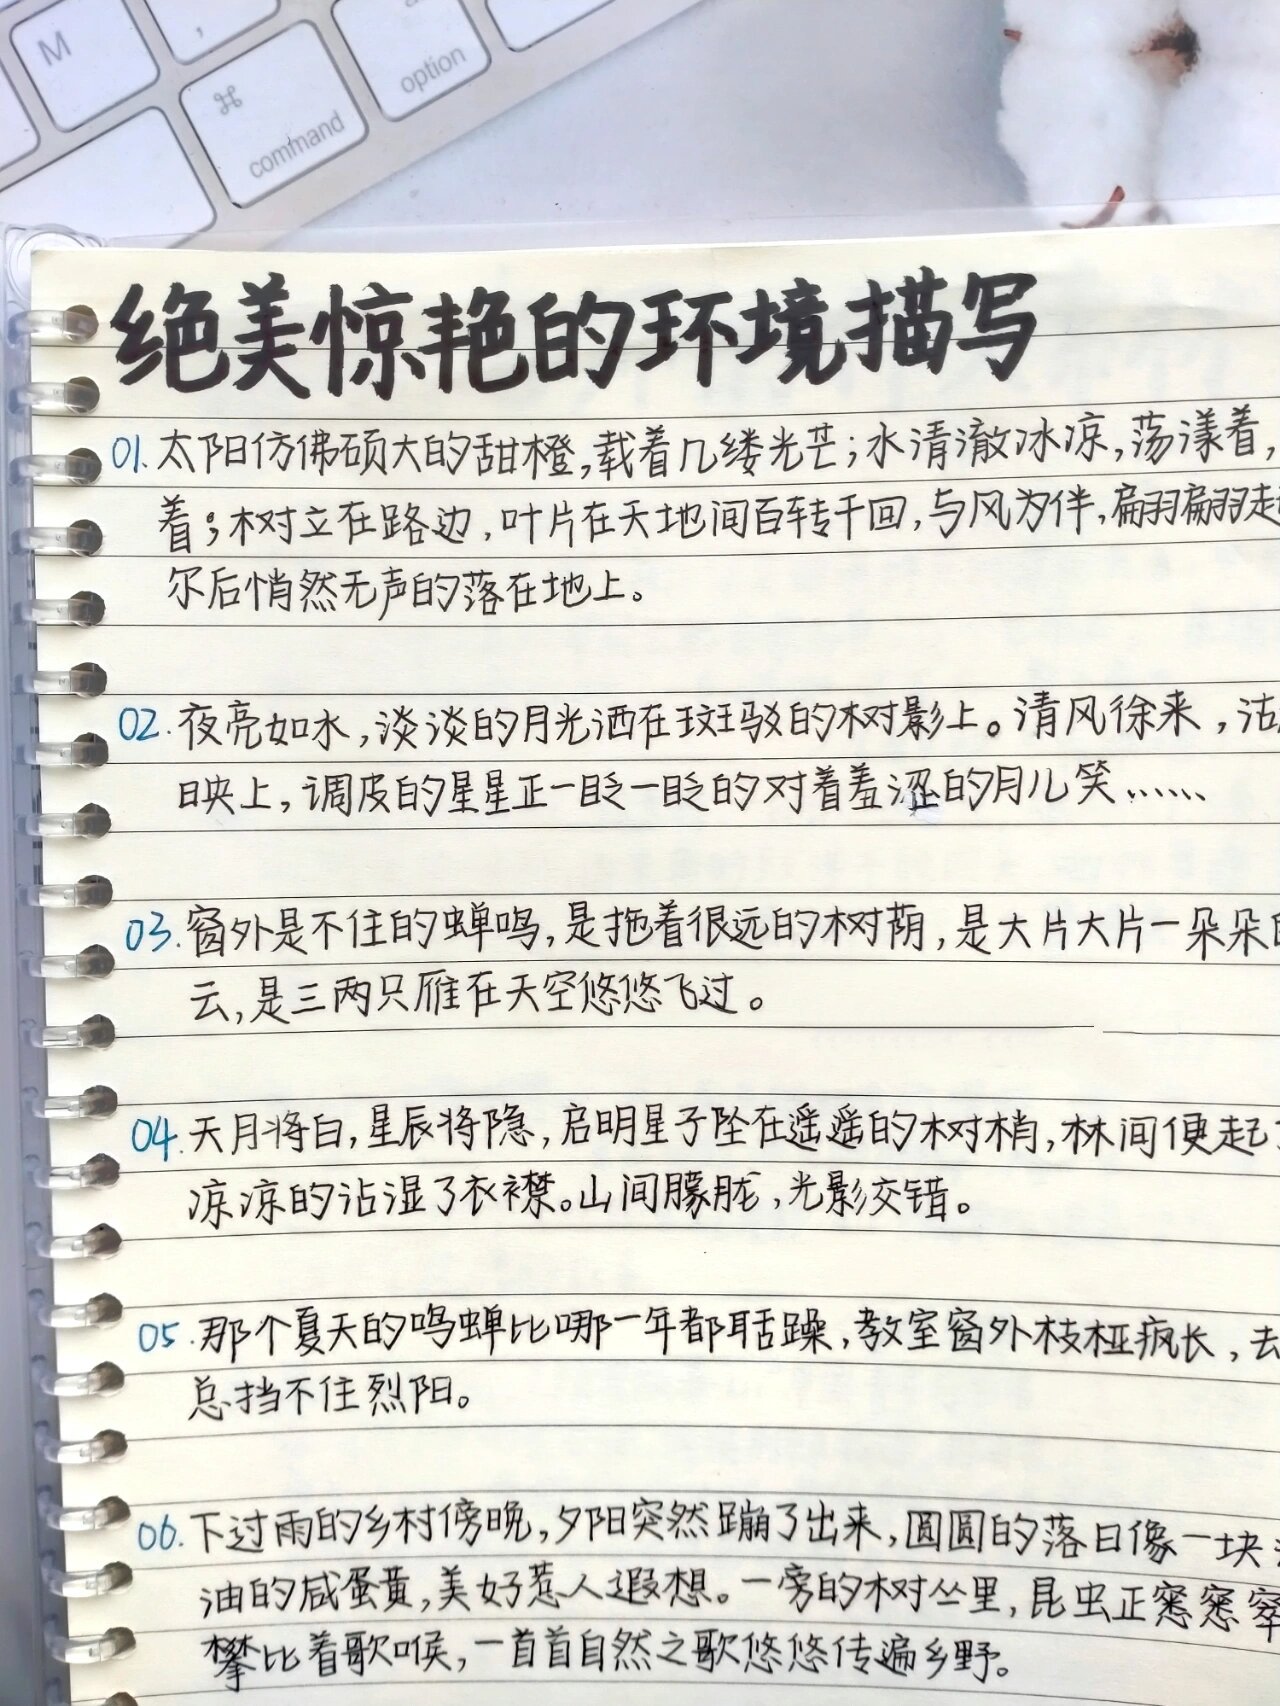 M
,
⌘
command
option
绝美惊艳的环境描写
01.太阳仿佛硕大的甜橙,载着几缕光芒;水清澈冰凉,荡漾着,
着;树立在路边,叶片在天地间百转千回,与风为伴,翩翩起
尔后悄然无声的落在地上。
02.夜亮如水,淡淡的月光洒在斑驳的树影上。清风徐来,沽
映上,调皮的星星正一眨一眨的对着羞涩的月儿笑……
03.窗外是不住的蝉鸣,是拖着很远的树荫,是大片大片一朵朵的
云,是三两只雁在天空悠悠飞过。
04.天月将白,星辰将隐,启明星子坠在遥遥的树梢,林间便起了
凉凉的沾湿了衣襟。山间朦胧,光影交错。
05.那个夏天的鸣蝉比哪一年都聒躁,教室窗外枝桠疯长,去
总挡不住烈阳。
06.下过雨的乡村傍晚,夕阳突然蹦了出来,圆圆的落日像一块
油的咸蛋黄,美好惹人遐想。一旁的树丛里,昆虫正窸窸窣
攀比着歌喉,一首首自然之歌悠悠传遍乡野。